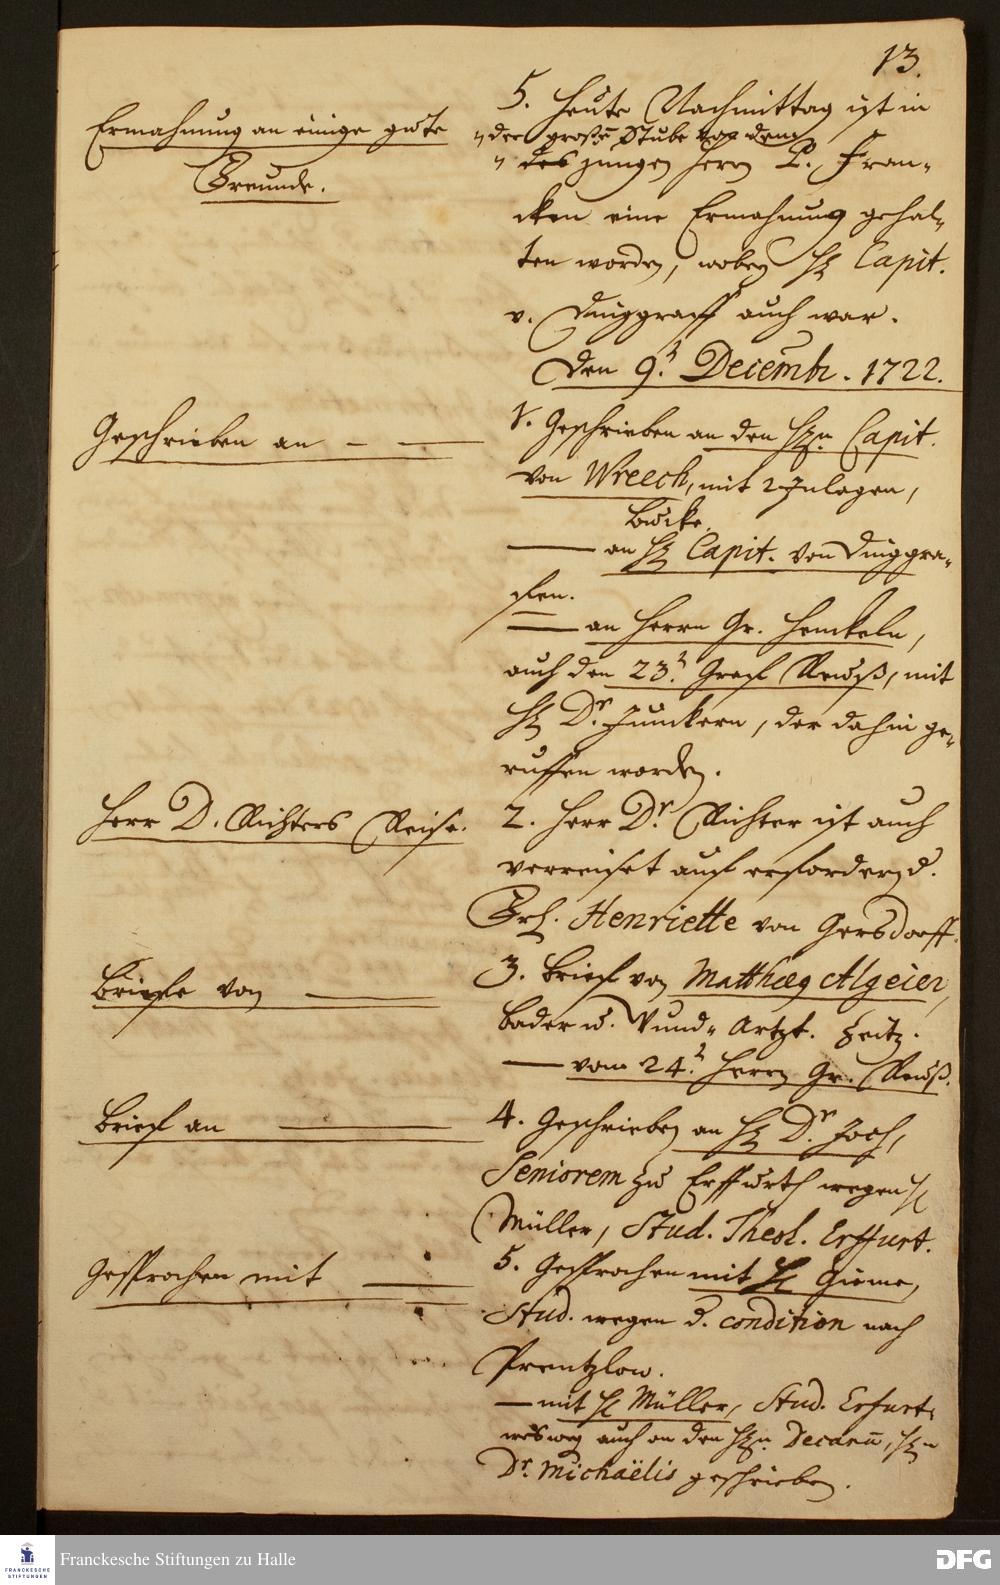 13.
Ermahnung an einige gute
Freunde.
5. Heute Nachmittag ist in
der große Stube von dem
des jungen Herrn P. Fran-
cken eine Ermahnung gehal-
ten worden, wobey H. Capit.
v. auch war.
Den 9. Decembr. 1722.
Geschrieben an – —
1. Geschrieben an den Hn. Capit.
von Wreech, mit 2 Inlagen,
— an H. Capit. von
fen.
— an Herrn Gr. Henckeln,
auch den 23. Graf Reuß, mit
H. Dr. Junckern, der dahin ge-
ruffen worden.
Herr D. Richters Reise.
2. Herr Dr. Richter ist auch
verreiset auf erfordern d.
Frl. Henriette von Gersdorff.
Briefe von —
3. Brief von Matthaeo Algeier,
Bader u. Wund-Artzt. Zeitz.
— vom 24. Herrn Gr. Reuß.
Brief an —
4. Geschrieben an H. Dr. Joch,
Seniorem zu Erffurth wegen H
Müller, Stud. Theol. Erffurt.
Gesprochen mit —
5. Gesprochen mit H
Stud. wegen d. condition nach
Prentzlow.
— mit H Müller, Stud. Erfurt.
weswg auch an den Hn. Decanū, Hn
Dr. Michaëlis geschrieben.
FRANCKESCHE
STIFTUNGEN
Franckesche Stiftungen zu Halle
DFG